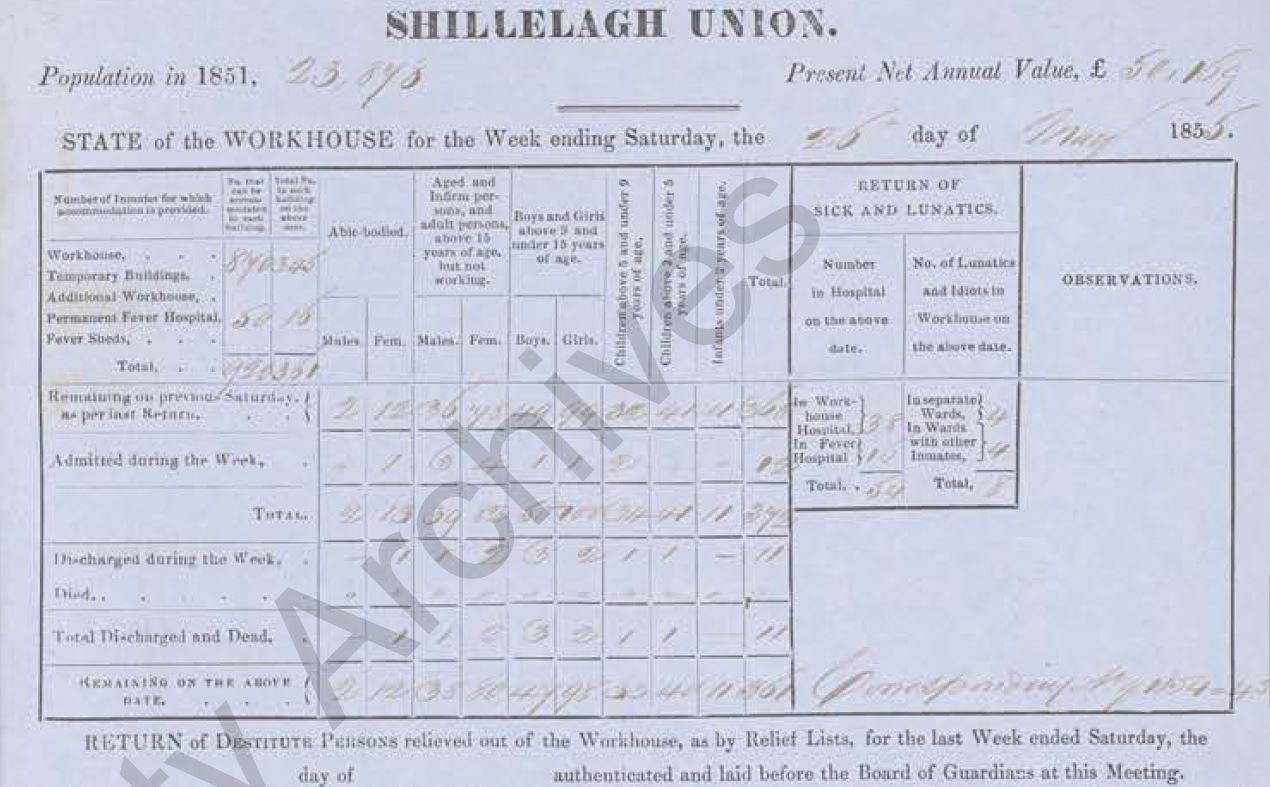 SHILLELAGH UNION.
Population in 1851, 23,878 Present Net Annual Value, £ 50,159
STATE of the WORKHOUSE for the Week ending Saturday, the 26 day of May 1855.
Number of Inmates for which accommodation is provided.
No. that can be accommodated in each building.
Total No. in each building on the above date.
Able-bodied.
Aged and Infirm persons, and adult persons, above 15 years of age, but not working.
Boys and Girls above 9 and under 15 years of age.
Children above 5 and under 9 years of age.
Children above 2 and under 5 years of age.
Infants under 2 years of age.
Total.
RETURN OF SICK AND LUNATICS.
Number in Hospital on the above date.
No. of Lunatics and Idiots in Workhouse on the above date.
OBSERVATIONS.
Workhouse, . . . 870 345
Temporary Buildings. .
Additional Workhouse, .
Permanent Fever Hospital. 50 16
Fever Sheds, . . .
Total. . . 920 361
Males. Fem. Males. Fem. Boys. Girls.
Remaining on previous Saturday, as per last Return. . . 2 12 36 78 49 99 32 41 11 360
Admitted during the Week, . - 1 3 4 1 1 2 12
TOTAL. 2 13 39 82 50 100 34 41 11 372
Discharged during the Week. . - 1 1 2 3 2 1 1 - 11
Died. . . . . . .
Total Discharged and Dead. . - 1 1 2 3 2 1 1 - 11
REMAINING ON THE ABOVE DATE. . . . 2 12 38 80 47 98 33 40 11 361
In Workhouse Hospital, 38
In Fever Hospital 16
Total. . 54
In separate Wards, 4
In Wards with other Inmates, 4
Total, 8
Corresponding 1854
RETURN of DESTITUTE PERSONS relieved out of the Workhouse, as by Relief Lists, for the last Week ended Saturday, the
day of authenticated and laid before the Board of Guardians at this Meeting.
ty Archives